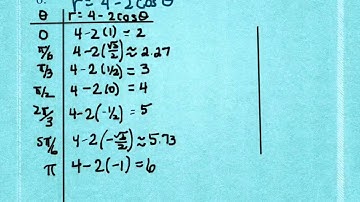 r = 4 - 2 cos θ
θ r = 4 - 2cosθ
0 4-2(1) = 2
π/6 4-2(√3/2) ≈ 2.27
π/3 4-2(1/2) = 3
π/2 4-2(0) = 4
2π/3 4-2(-1/2) = 5
5π/6 4-2(-√3/2) ≈ 5.73
π 4-2(-1) = 6